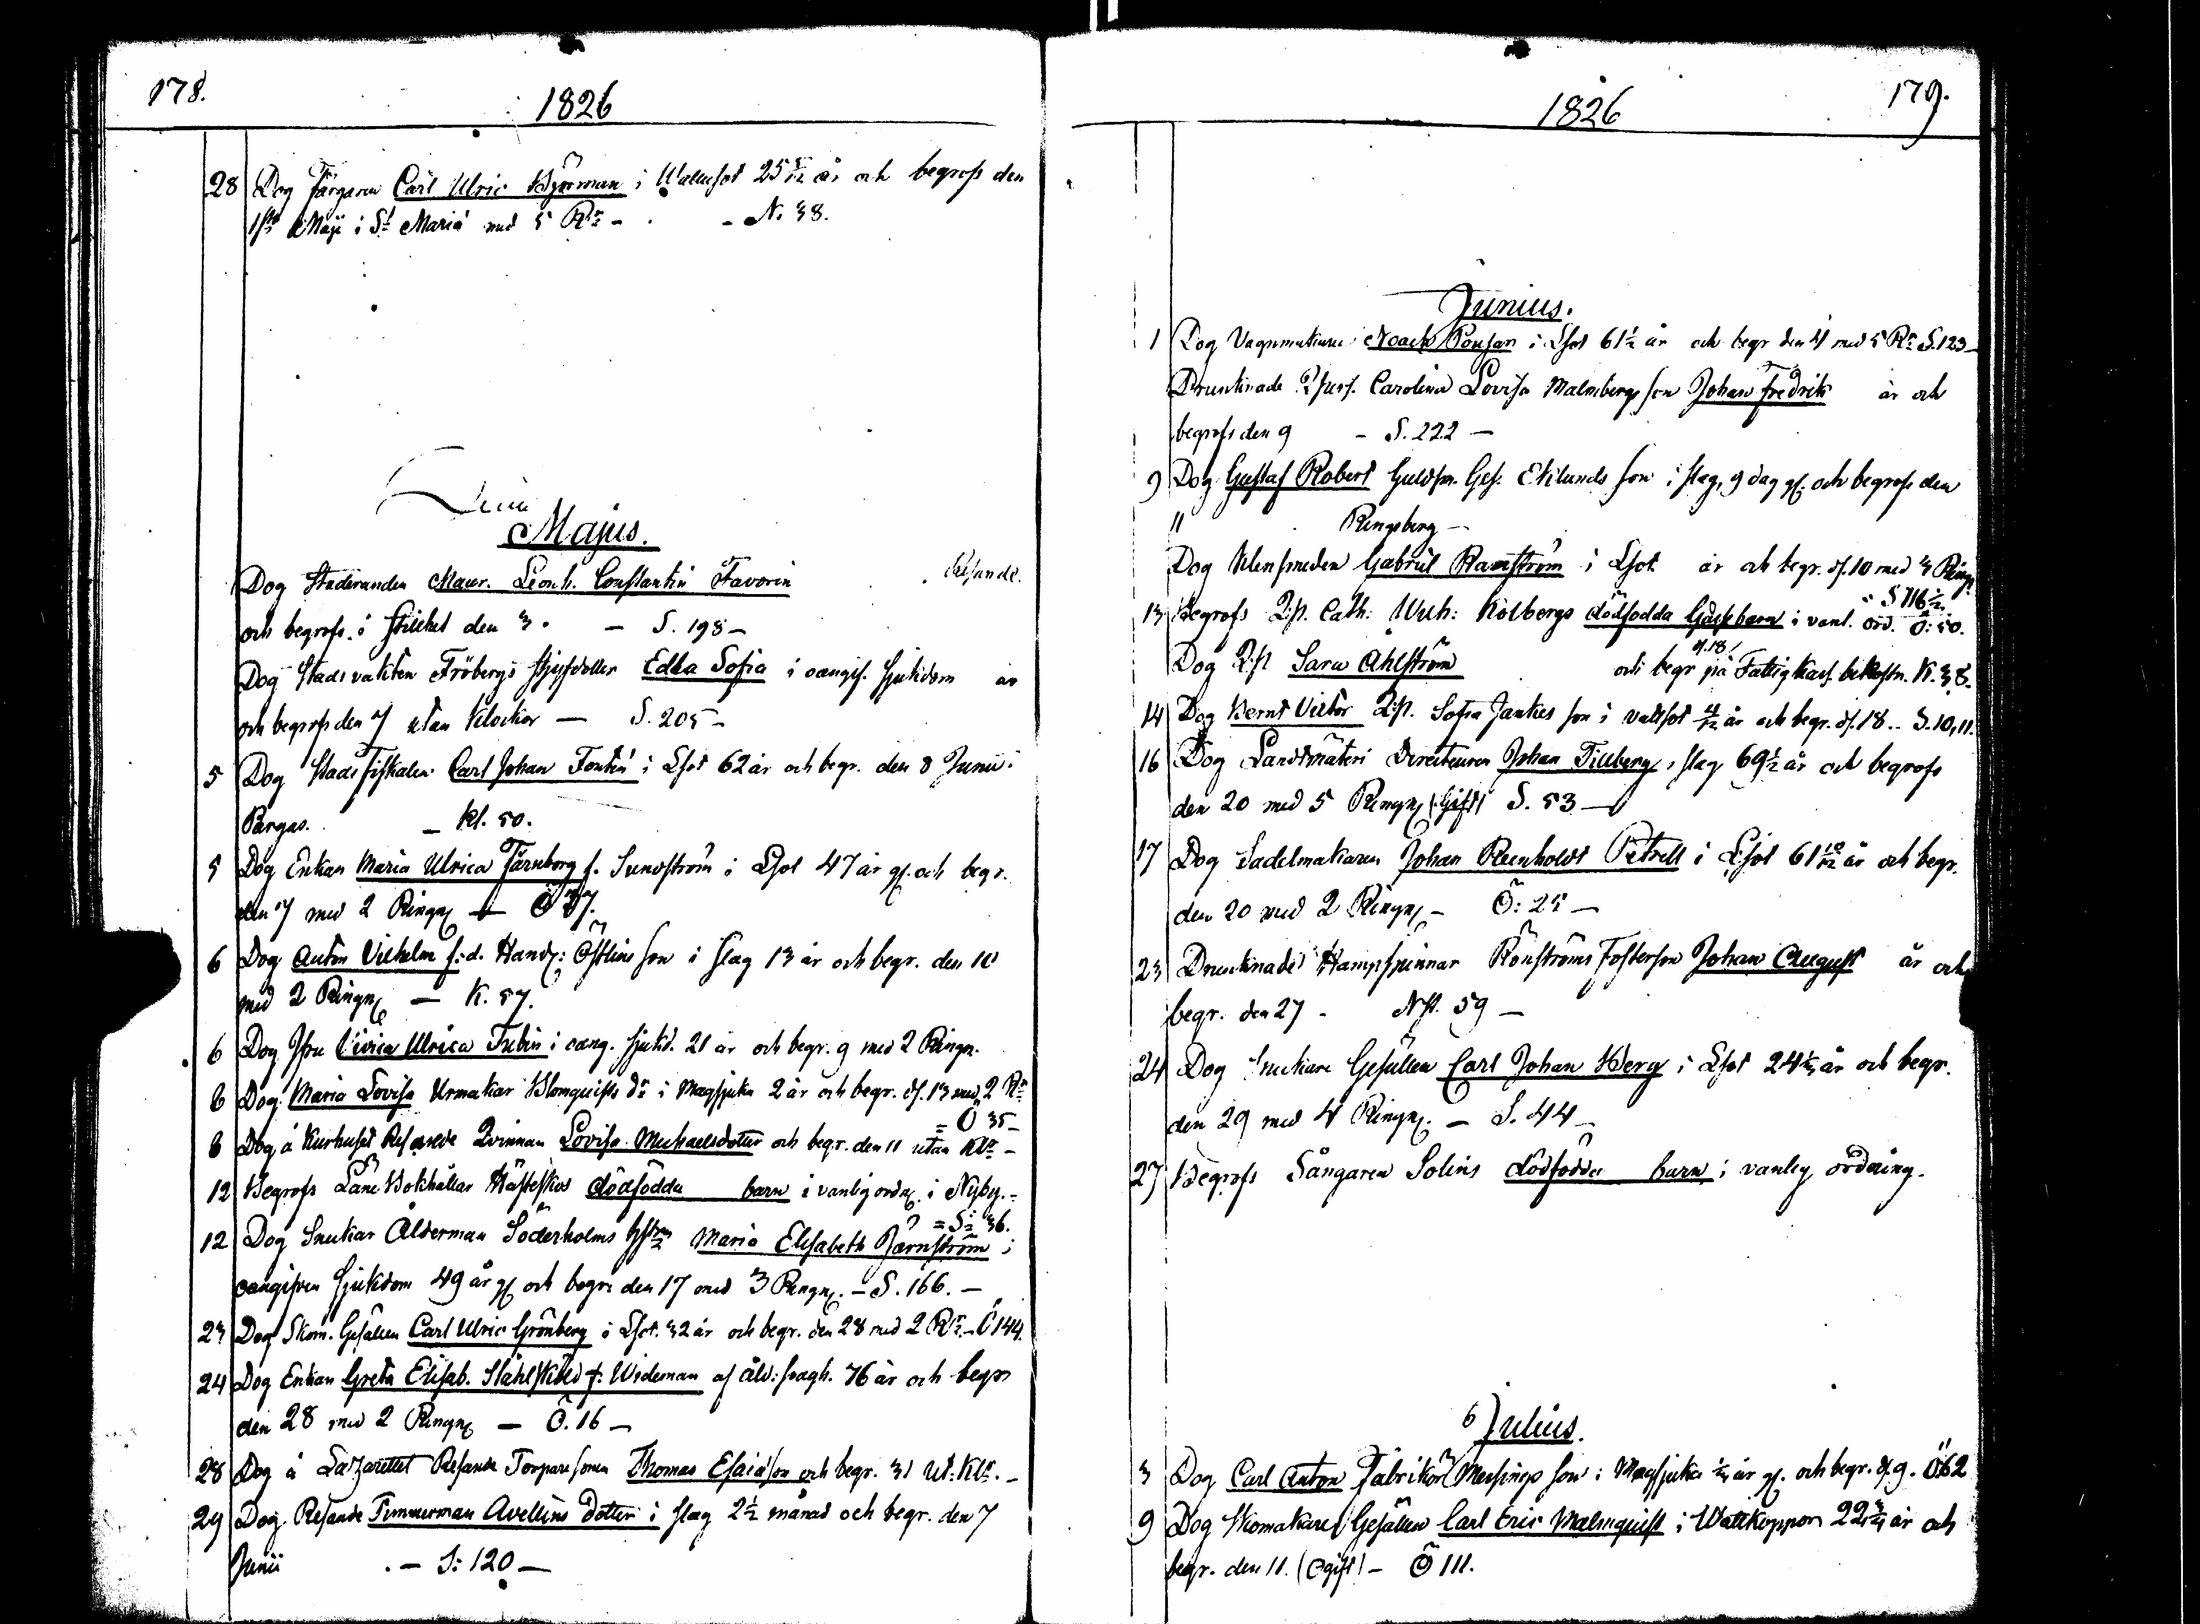 178.
1826
28 Dog Färgaren Carl Ulric Byrman i Wattusot 25 5/12 år och begrofs den
1sta Maji i St Mariæ med 5 Rr - - N. 38.
Majus.
Dog Studeranden Maur. Leonh. Constantin Favorin Resande.
och begrofs i stillhet den 3. - S. 198 -
Dog Stadsvakten Fröbergs styfdotter Edla Sofia i oangif. sjukdom år
och begrofs den 7 utan Klockor - S. 205 -
5 Dog Stads fiskalen Carl Johan Fontin i Lsot 62 år och begr. den 8 Junii i
Pargas. - Kl. 50.
5 Dog Enkan Maria Ulrica Tärnborg f. Sundström i Lsot 47 år gl. och begr.
den 7 med 2 Ringn. - Ö 37.
6 Dog Anton Vilhelm f. d. Handl: Östlins son i slag 13 år och begr. den 10
med 2 Ringn. - K. 57.
6 Dog Jfru Ulrica Tubin i oang. sjukd. 21 år och begr. 9 med 2 Ringn.
8 Dog Maria Lovisa Urmakar Blomquists dr i Magsjuka 2 år och begr. d. 13 med 2 Rr
= Ö 35 -
8 Dog å Kurhuset Resande Qvinnan Lovisa Michaelsdotter och begr. den 11 utan Klr -
12 Begrofs Läne Bokhållar Hästeskos dödfödda barn i vanlig ordn. i Nyby. -
= S: 36.
12 Dog Snickar Ålderman Söderholms hstru Maria Elisabeth Järnström i
oangifven sjukdom 49 år gl och begr. den 17 med 3 Ringn. - S. 166. -
23 Dog Skom. Gesällen Carl Ulric Grönberg i Lsot. 32 år och begr. den 28 med 2 Rr - Ö 144.
24 Dog Enkan Greta Elisab. Stålsköld f. Wideman af åld: svagh. 76 år och begr
den 28 med 2 Ringn. - Ö. 16 -
28 Dog å Lazarettet Resande Torpare sonen Thomas Esaiasson och begr. 31 ut. Klr. -
29 Dog Resande Timmerman Avellins dotter i slag 2 1/2 månad och begr. den 7
Junii - S: 120 -
1826
179.
Junius.
1 Dog Vagnmakaren Noach Ponsan i Lsot 61 1/2 år och begr den 4 med 5 Rr S. 123 -
Drunknade Qpers. Carolina Lovisa Malmbergs son Johan Fredrik år och
begrofs den 9 - S. 222 -
9 Dog Gustaf Robert Guldsm. Ges. Eklunds son i slag, 9 dag gl. och begrofs den
11 Ringsberg -
Dog Klensmeden Gabriel Ramström i Lsot år och begr. d. 10 med 3 Ringn.
S 116 1/2
13 Begrofs Q.p. Cath: Wilh: Kolbergs dödfödda Gossebarn i vanl. ord. Ö: 50.
Dog Q.p. Sara Ahlström och begr d. 18 på Fattig Kass. bekostn. K. 38.
14 Dog Bernt Victor Q.p. Sofia Jankes son i vattsot 4/12 år och begr. d. 18.. S. 10, 11.
16 Dog Landtmäteri Directeuren Johan Tillberg i slag 69 1/2 år och begrofs
den 20 med 5 Ringn. (Gift) S. 53 -
17 Dog Sadelmakaren Johan Reinholdt Petrell i Lsot 61 10/12 år och begr.
den 20 med 2 Ringn. - Ö: 25 -
23 Drunknade Hampspinnar Rönströms Fosterson Johan August år och
begr. den 27 - N. 59 -
24 Dog Snickare Gesällen Carl Johan Berg i Lsot 24 3/4 år och begr.
den 29 med 4 Ringn. - S. 44 -
27 Begrofs Sångaren Solins dödfödda barn i vanlig ordning.
Julius.
3 Dog Carl Anton Fabrikör Messings son i Magsjuka 3/4 år gl. och begr. d. 9. Ö 62
9 Dog Skomakare Gesällen Carl Eric Malmquist i Wattkoppor 22 3/4 år och
begr. den 11. (Ogift) - Ö 111.